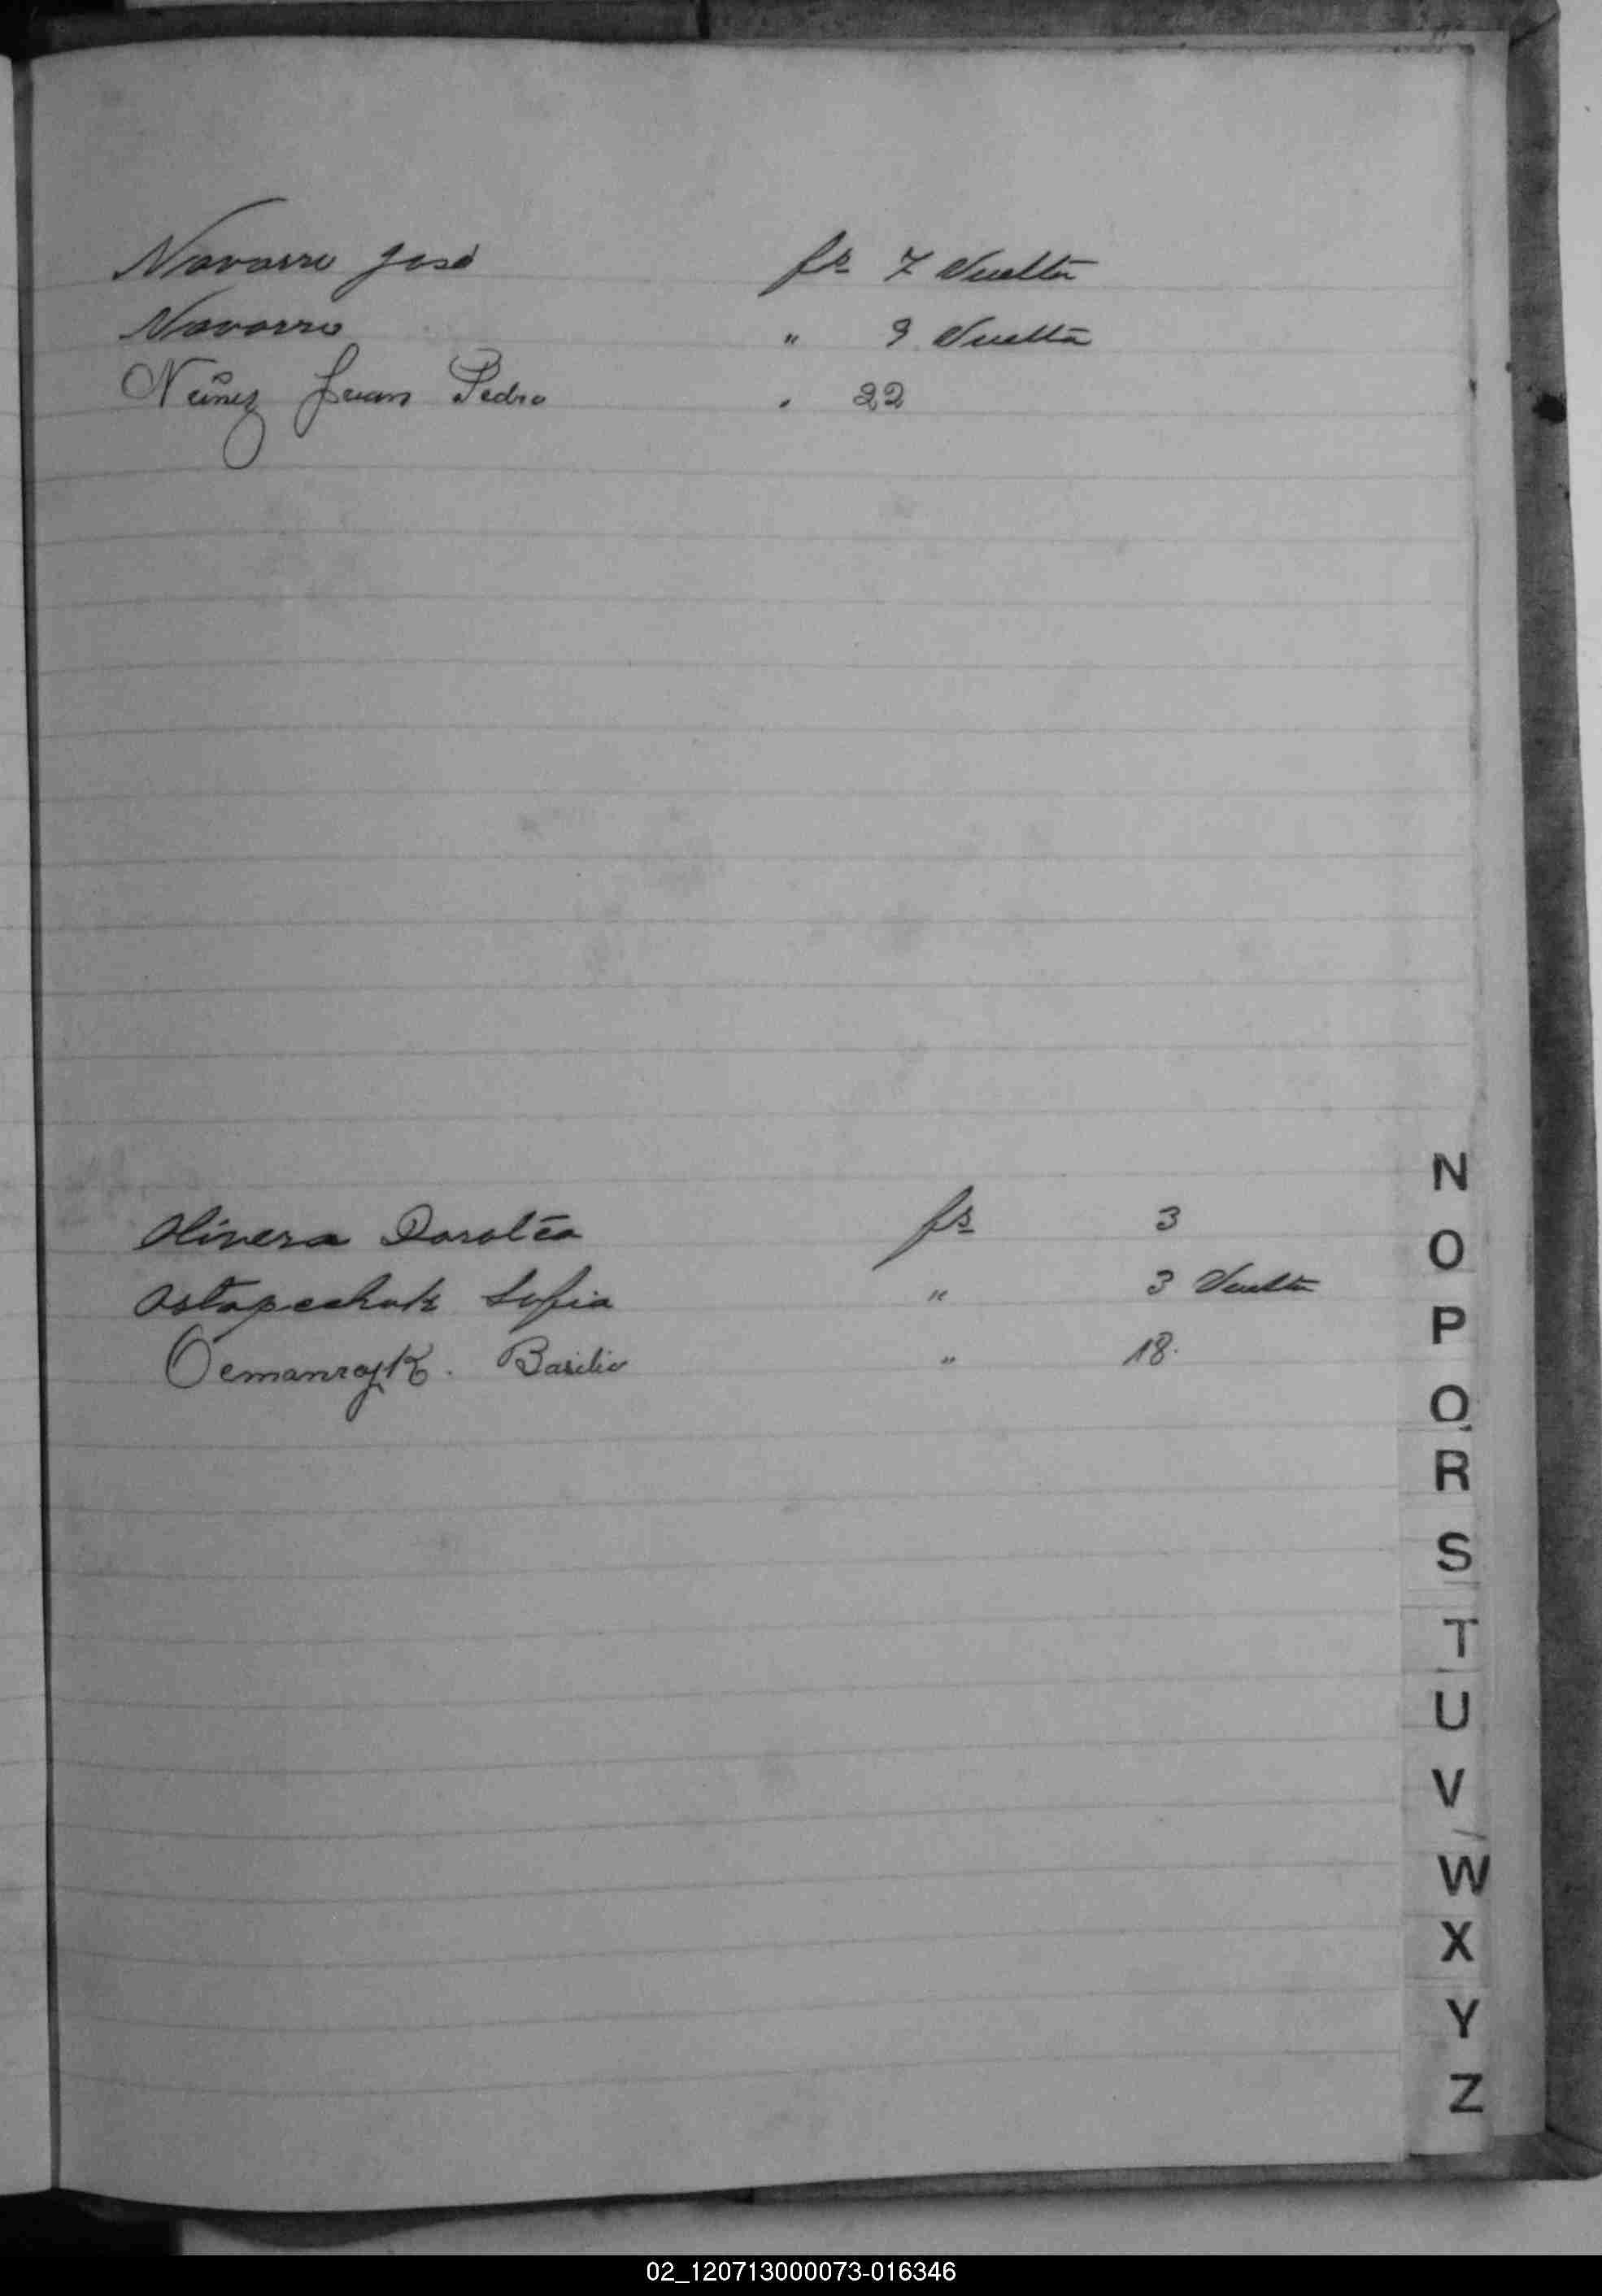 Navarro José fs 7 Vuelta
Navarro " 9 Vuelta
Núñez Juan Pedro " 22
Olivera Dorotéa fs 3
Ostapechuk Sofia " 3 Vuelta
Basilio " 18.
N
O
P
Q
R
S
T
U
V
W
X
Y
Z
02_120713000073-016346